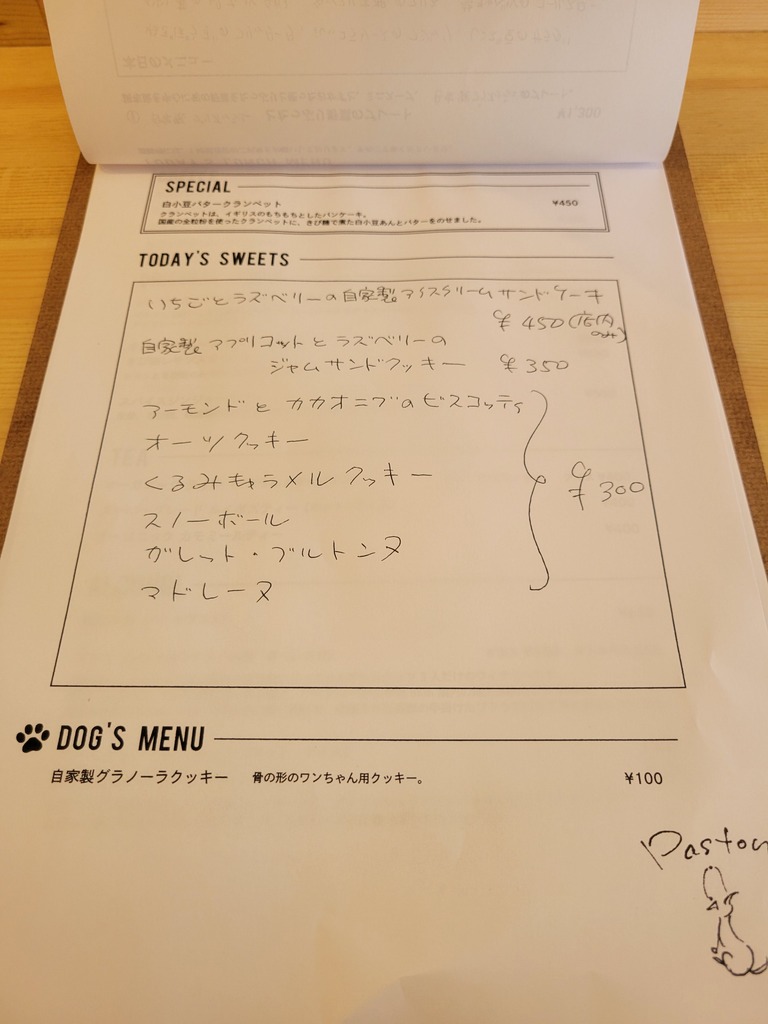 SPECIAL
白小豆バタークランペット ¥450
クランペットは、イギリスのもちもちとしたパンケーキ。
国産の全粒粉を使ったクランペットに、きび糖で煮た白小豆あんとバターをのせました。
TODAY'S SWEETS
いちごとラズベリーの自家製アイスクリームサンドケーキ
¥450(店内のみ)
自家製アプリコットとラズベリーの
ジャムサンドクッキー ¥350
アーモンドとカカオニブのビスコッティ
オーツクッキー
くるみキャラメルクッキー
¥300
スノーボール
ガレット・ブルトンヌ
マドレーヌ
DOG'S MENU
自家製グラノーラクッキー 骨の形のワンちゃん用クッキー。 ¥100